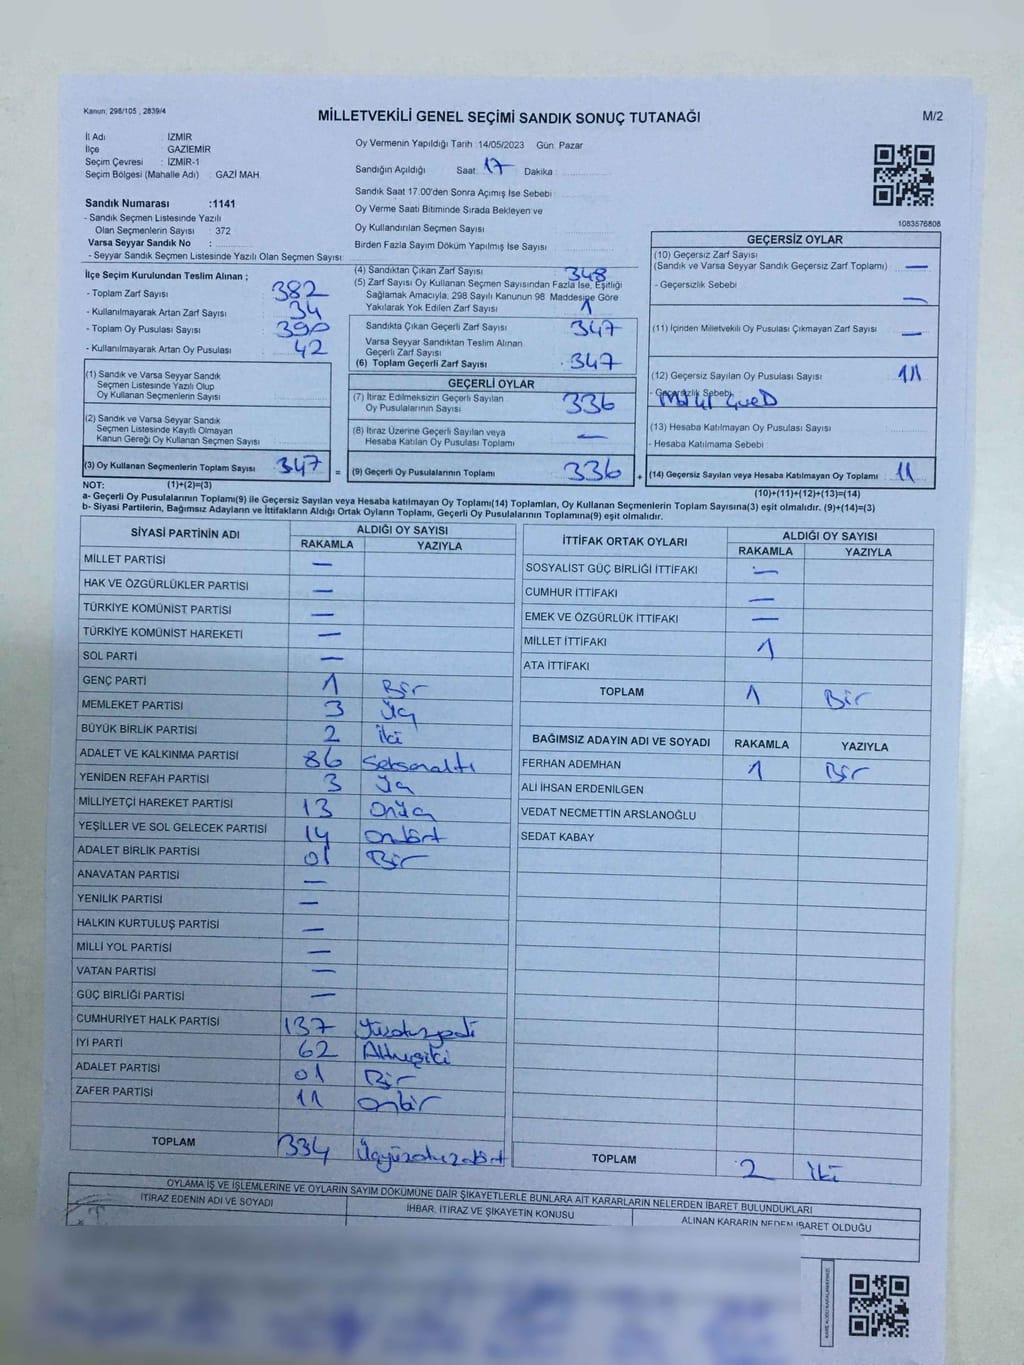 Kanun; 298/105 , 2839/4
MİLLETVEKİLİ GENEL SEÇİMİ SANDIK SONUÇ TUTANAĞI
M/2
İl Adı : İZMİR
İlçe : GAZİEMİR
Seçim Çevresi : İZMİR-1
Seçim Bölgesi (Mahalle Adı) : GAZİ MAH.
Oy Vermenin Yapıldığı Tarih :14/05/2023 Gün: Pazar
Sandığın Açıldığı Saat: 17 Dakika :
Sandık Saat 17.00'den Sonra Açımış İse Sebebi :
Oy Verme Saati Bitiminde Sırada Bekleyen ve
Oy Kullandırılan Seçmen Sayısı
Birden Fazla Sayım Döküm Yapılmış İse Sayısı
1083576808
Sandık Numarası :1141
- Sandık Seçmen Listesinde Yazılı
Olan Seçmenlerin Sayısı : 372
Varsa Seyyar Sandık No :
- Seyyar Sandık Seçmen Listesinde Yazılı Olan Seçmen Sayısı:
İlçe Seçim Kurulundan Teslim Alınan ;
- Toplam Zarf Sayısı : 382
- Kullanılmayarak Artan Zarf Sayısı : 34
- Toplam Oy Pusulası Sayısı : 390
- Kullanılmayarak Artan Oy Pusulası : 42
(1) Sandık ve Varsa Seyyar Sandık
Seçmen Listesinde Yazılı Olup
Oy Kullanan Seçmenlerin Sayısı :
(2) Sandık ve Varsa Seyyar Sandık
Seçmen Listesinde Kayıtlı Olmayan
Kanun Gereği Oy Kullanan Seçmen Sayısı :
(3) Oy Kullanan Seçmenlerin Toplam Sayısı : 347 =
(4) Sandıktan Çıkan Zarf Sayısı 348
(5) Zarf Sayısı Oy Kullanan Seçmen Sayısından Fazla İse, Eşitliği
Sağlamak Amacıyla, 298 Sayılı Kanunun 98 Maddesine Göre
Yakılarak Yok Edilen Zarf Sayısı : 1
Sandıkta Çıkan Geçerli Zarf Sayısı : 347
Varsa Seyyar Sandıktan Teslim Alınan
Geçerli Zarf Sayısı :
(6) Toplam Geçerli Zarf Sayısı : 347
GEÇERLİ OYLAR
(7) İtiraz Edilmeksizin Geçerli Sayılan
Oy Pusulalarının Sayısı : 336
(8) İtiraz Üzerine Geçerli Sayılan veya
Hesaba Katılan Oy Pusulası Toplamı : —
(9) Geçerli Oy Pusulalarının Toplamı : 336 +
GEÇERSİZ OYLAR
(10) Geçersiz Zarf Sayısı
(Sandık ve Varsa Seyyar Sandık Geçersiz Zarf Toplamı) : —
- Geçersizlik Sebebi : —
(11) İçinden Milletvekili Oy Pusulası Çıkmayan Zarf Sayısı : —
(12) Geçersiz Sayılan Oy Pusulası Sayısı : 11
- Geçersizlik Sebebi:
(13) Hesaba Katılmayan Oy Pusulası Sayısı :
- Hesaba Katılmama Sebebi :
(14) Geçersiz Sayılan veya Hesaba Katılmayan Oy Toplamı : 11
NOT: (1)+(2)=(3)
(10)+(11)+(12)+(13)=(14)
a- Geçerli Oy Pusulalarının Toplamı(9) ile Geçersiz Sayılan veya Hesaba katılmayan Oy Toplamı(14) Toplamları, Oy Kullanan Seçmenlerin Toplam Sayısına(3) eşit olmalıdır. (9)+(14)=(3)
b- Siyasi Partilerin, Bağımsız Adayların ve İttifakların Aldığı Ortak Oyların Toplamı, Geçerli Oy Pusulalarının Toplamına(9) eşit olmalıdır.
SİYASİ PARTİNİN ADI ALDIĞI OY SAYISI
RAKAMLA YAZIYLA
MİLLET PARTİSİ —
HAK VE ÖZGÜRLÜKLER PARTİSİ —
TÜRKİYE KOMÜNİST PARTİSİ —
TÜRKİYE KOMÜNİST HAREKETİ —
SOL PARTİ —
GENÇ PARTİ 1 Bir
MEMLEKET PARTİSİ 3 Üç
BÜYÜK BİRLİK PARTİSİ 2 İki
ADALET VE KALKINMA PARTİSİ 86 Seksenaltı
YENİDEN REFAH PARTİSİ 3 Üç
MİLLİYETÇİ HAREKET PARTİSİ 13 Onüç
YEŞİLLER VE SOL GELECEK PARTİSİ 14 Ondört
ADALET BİRLİK PARTİSİ 01 Bir
ANAVATAN PARTİSİ —
YENİLİK PARTİSİ —
HALKIN KURTULUŞ PARTİSİ —
MİLLİ YOL PARTİSİ —
VATAN PARTİSİ —
GÜÇ BİRLİĞİ PARTİSİ —
CUMHURİYET HALK PARTİSİ 137 Yüzotuzyedi
İYİ PARTİ 62 Altmışiki
ADALET PARTİSİ 01 Bir
ZAFER PARTİSİ 11 Onbir
TOPLAM 334 Üçyüzotuzdört
İTTİFAK ORTAK OYLARI ALDIĞI OY SAYISI
RAKAMLA YAZIYLA
SOSYALİST GÜÇ BİRLİĞİ İTTİFAKI —
CUMHUR İTTİFAKI —
EMEK VE ÖZGÜRLÜK İTTİFAKI —
MİLLET İTTİFAKI 1
ATA İTTİFAKI
TOPLAM 1 Bir
BAĞIMSIZ ADAYIN ADI VE SOYADI RAKAMLA YAZIYLA
FERHAN ADEMHAN 1 Bir
ALİ İHSAN ERDENİLGEN
VEDAT NECMETTİN ARSLANOĞLU
SEDAT KABAY
TOPLAM 2 İki
OYLAMA İŞ VE İŞLEMLERİNE VE OYLARIN SAYIM DÖKÜMÜNE DAİR ŞİKAYETLERLE BUNLARA AİT KARARLARIN NELERDEN İBARET BULUNDUKLARI
İTİRAZ EDENİN ADI VE SOYADI
İHBAR, İTİRAZ VE ŞİKAYETİN KONUSU
ALINAN KARARIN NEDEN İBARET OLDUĞU